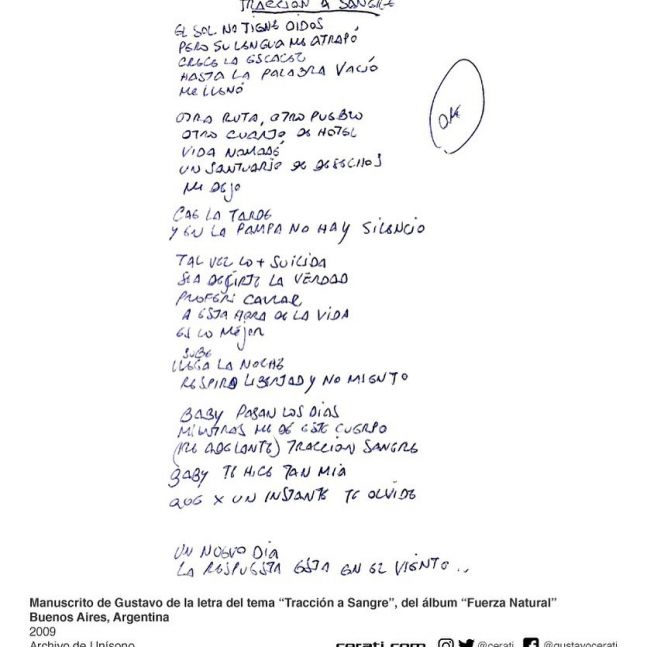 TRACCION A SANGRE
EL SOL NO TIENE OIDOS
PERO SU LENGUA ME ATRAPÓ
CRECE LA ESCASEZ
HASTA LA PALABRA VACIÓ
ME LLENÓ
OTRA RUTA, OTRO PUEBLO
OTRO CUARTO DE HOTEL
VIDA NOMADE
UN SANTUARIO DE DESECHOS
ME DEJO
OK
CAE LA TARDE
Y EN LA PAMPA NO HAY SILENCIO
TAL VEZ LO + SUICIDA
SEA DECIRTE LA VERDAD
PREFERI CALLAR
A ESTA HORA DE LA VIDA
ES LO MEJOR
SUBE
LLEGA LA NOCHE
RESPIRO LIBERTAD Y NO MIENTO
BABY PASAN LOS DIAS
MIENTRAS ME DE ESTE CUERPO
(IRE ADELANTE) TRACCION SANGRE
BABY TE HICE TAN MIA
QUE X UN INSTANTE TE OLVIDE
UN NUEVO DIA
LA RESPUESTA ESTA EN EL VIENTO...
Manuscrito de Gustavo de la letra del tema “Tracción a Sangre”, del álbum “Fuerza Natural”
Buenos Aires, Argentina
2009
Archivo de Unísono
cerati.com @cerati @gustavocerati